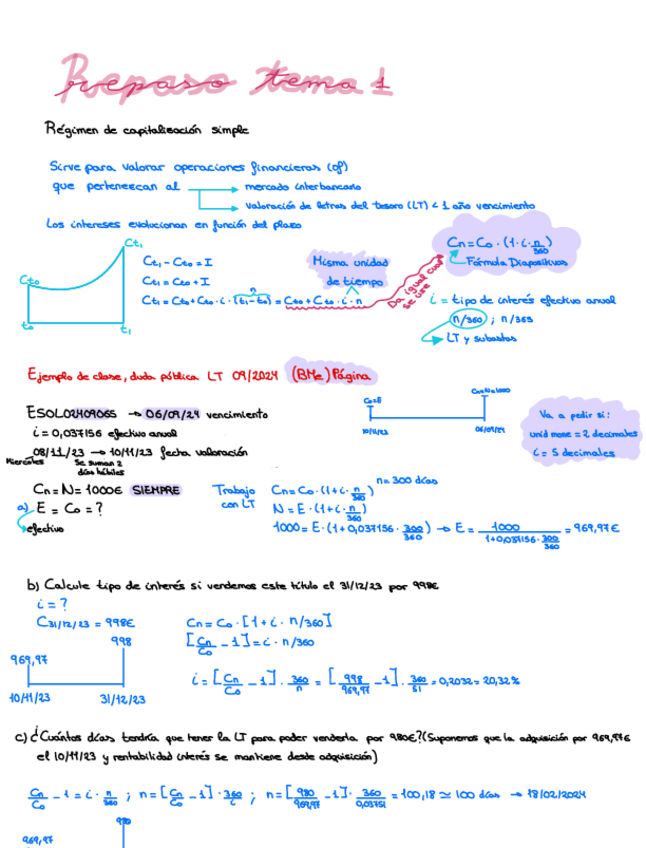 Repaso tema 1
Régimen de capitalización simple
Sirve para valorar operaciones financieras (of)
que pertenezcan al → mercado interbancario
→ valoración de letras del tesoro (LT) < 1 año vencimiento
Los intereses evolucionan en función del plazo
Ct₁
Ct₀
t₀ t₁
Ct₁ - Ct₀ = I
Ct₁ = Ct₀ + I
Ct₁ = Ct₀ + Ct₀ · i · (t₁ - t₀) = Ct₀ + Ct₀ · i · n
n
Misma unidad
de tiempo
Da igual cual
se use
Cn = Co · (1 · i · n/360)
Fórmula Diapositivas
i = tipo de interés efectivo anual
n/360 ; n/365
LT y subastas
Ejemplo de clase, duda pública LT 09/2024 (BMe) Página
ES0L02409065 → 06/09/24 vencimiento
i = 0,037156 efectivo anual
08/11/23 → 10/11/23 fecha valoración
Miércoles Se suman 2
días hábiles
Co=E
Cn=N=1000
10/11/23 06/09/24
Va a pedir si:
unid mone = 2 decimales
i = 5 decimales
Cn = N = 1000€ SIEMPRE
a) E = Co = ?
efectivo
Trabajo
con LT
Cn = Co · (1 + i · n/360) n = 300 días
N = E · (1 + i · n/360)
1000 = E · (1 + 0,037156 · 300/360) → E = 1000/(1+0,037156 · 300/360) = 969,97€
b) Calcule tipo de interés si vendemos este título el 31/12/23 por 998€
i = ?
C31/12/23 = 998€
998
969,97
10/11/23 31/12/23
Cn = Co · [1 + i · n/360]
[Cn/Co - 1] = i · n/360
i = [Cn/Co - 1] · 360/n = [998/969,97 - 1] · 360/51 = 0,2032 = 20,32%
c) ¿Cuántos días tendría que tener la LT para poder venderla por 980€? (Suponemos que la adquisición por 969,97€
el 10/11/23 y rentabilidad interés se mantiene desde adquisición)
Cn/Co - 1 = i · n/360 ; n = [Cn/Co - 1] · 360/i ; n = [980/969,97 - 1] · 360/0,03751 = 100,18 ≃ 100 días → 18/02/2024
980
969,97